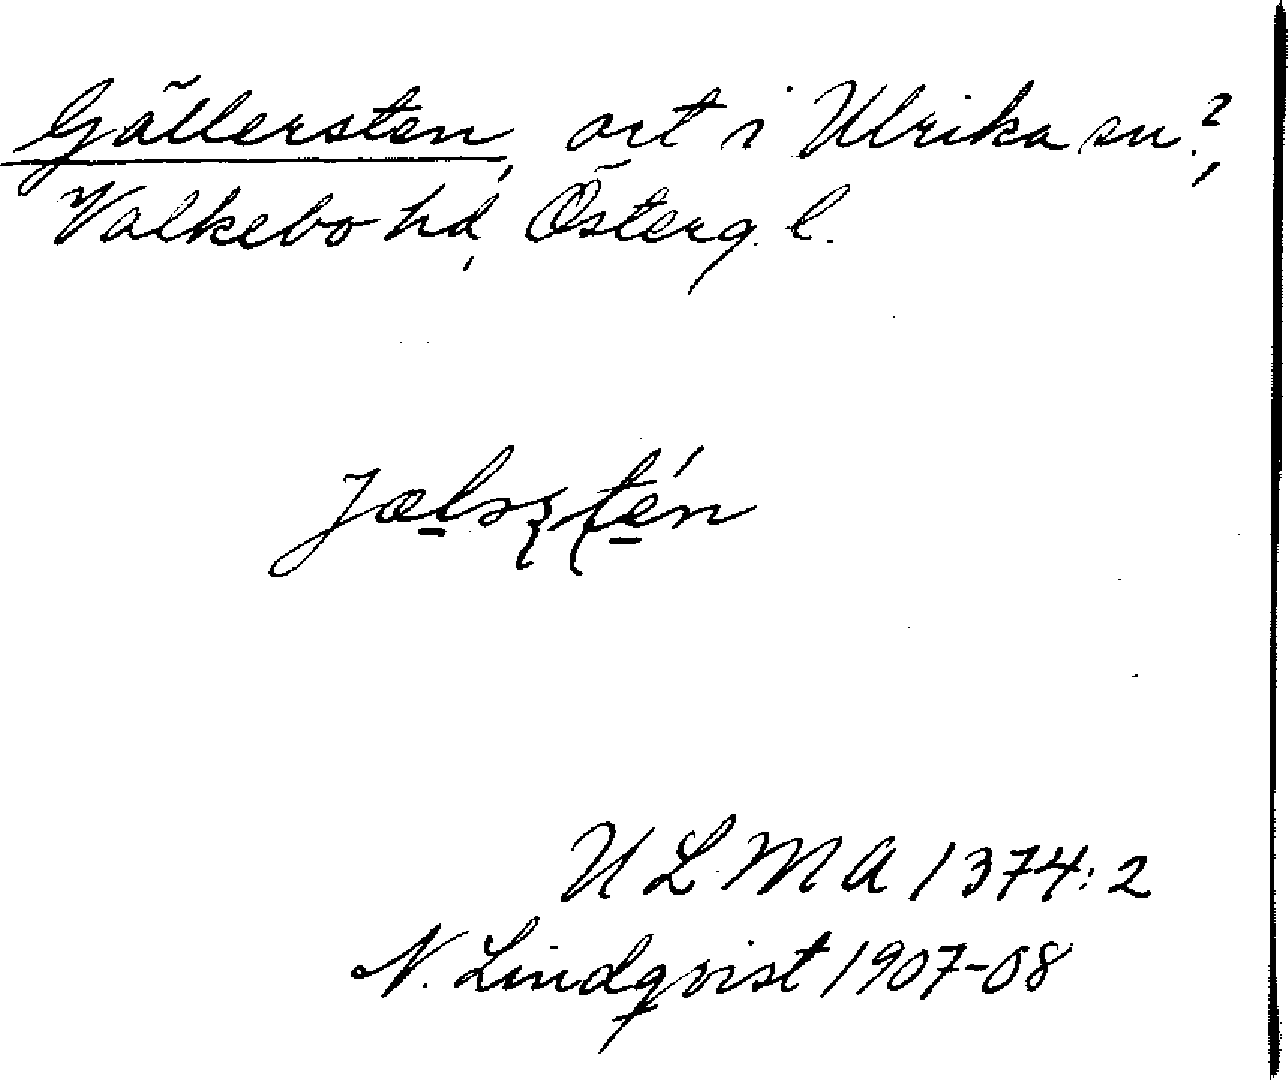 Gällersten, ort i Ulrika sn?,
Valkebo hd, Österg. l.
ULMA 1374:2
N. Lindqvist 1907-08